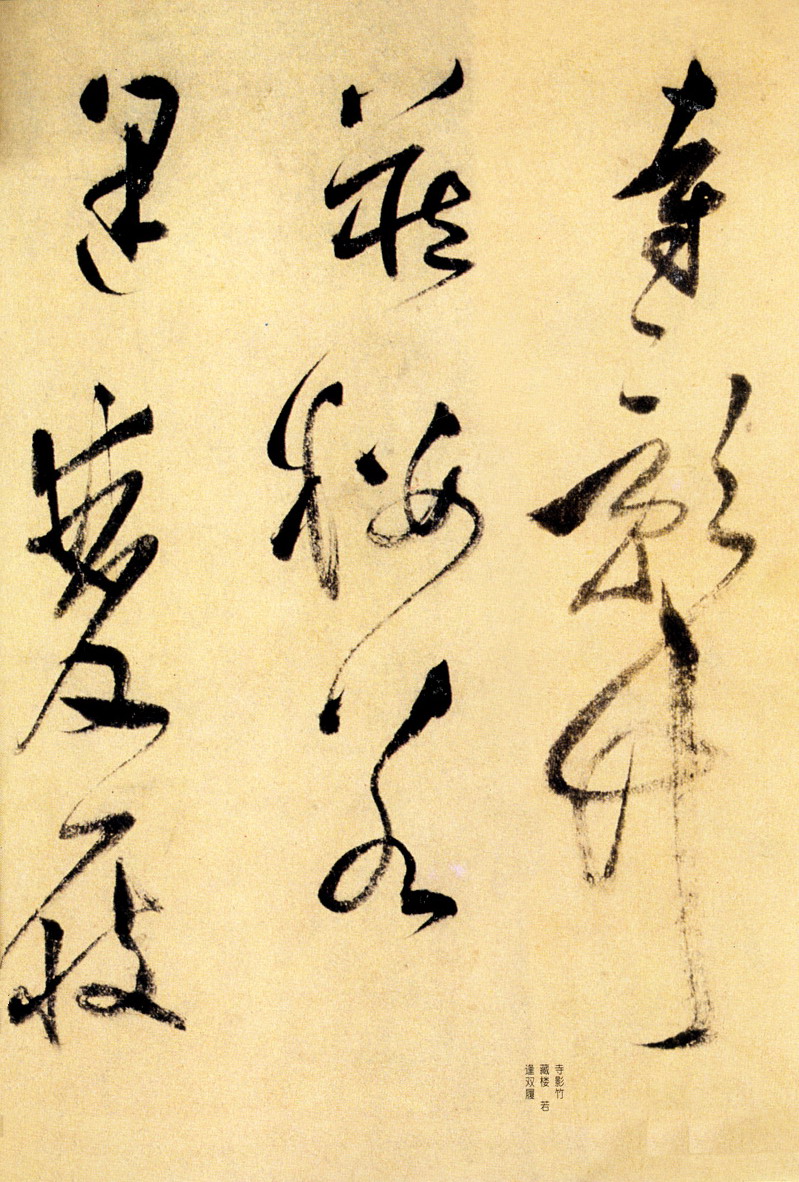 寺影竹
藏樓若
逢雙屐
寺影竹
藏楼 若
逢双履